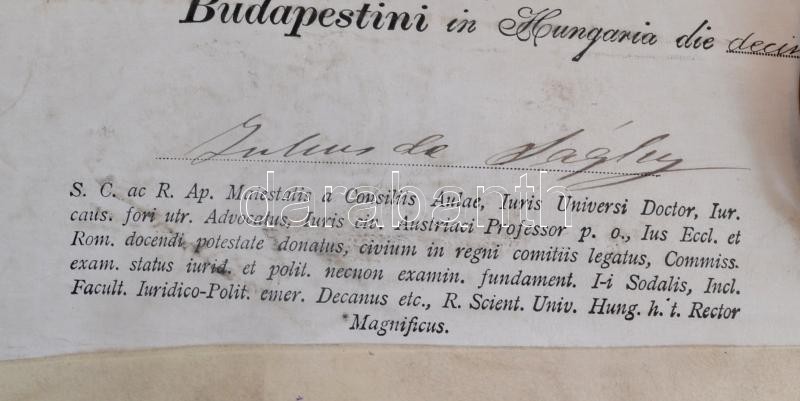 Budapestini in Hungaria die decim
Julius de Sághy
S. C. ac R. Ap. Maiestatis a Consiliis Aulae, Iuris Universi Doctor, Iur.
caus. fori utr. Advocatus, Iuris civ. Austriaci Professor p. o., Ius Eccl. et
Rom. docendi potestate donatus, civium in regni comitiis legatus, Commiss.
exam. status iurid. et polit. necnon examin. fundament. I-i Sodalis, Incl.
Facult. Iuridico-Polit. emer. Decanus etc., R. Scient. Univ. Hung. h. t. Rector
Magnificus.
darabanth